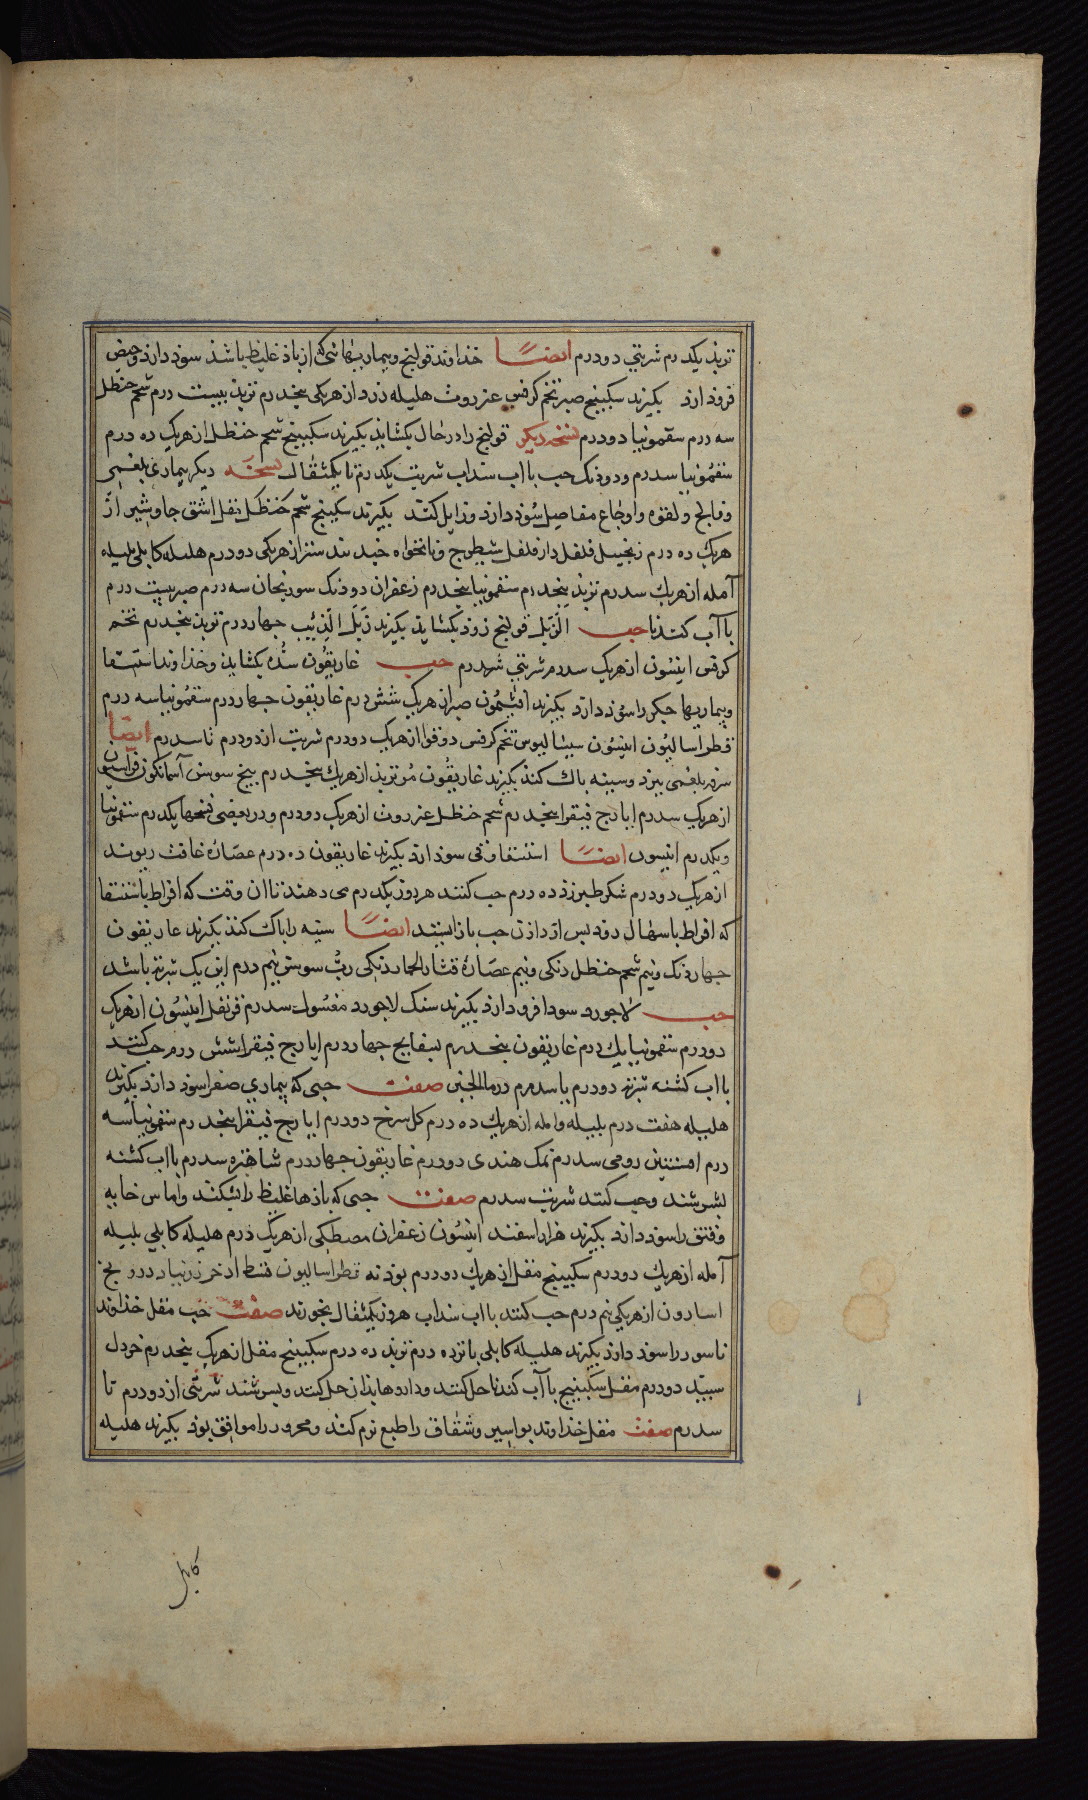 تربذ یکدرم شربتی دودرم ایضاً خذاوند قولنج و بیماریهائی که از باذ غلیظ باشذ سوذ دارذ و حیض
فروذ آرذ بکیرند سکبینج صبر تخم کرفس عنزروت هلیله زرد از هریکی پنجدرم تربذ بیست درم شحم حنظل
سه درم سقمونیا دودرم نسخه دیکر قولنج را در حال بکشایذ بکیرند سکبینج شحم حنظل از هریک ده درم
سقمونیا سدرم و دوذنک حب با آب سنداب شربت یکدرم تا یکمثقال نسخه دیکر بیماری بلغمی
و فالج و لقوه و اوجاع مفاصل سوذ دارذ و زایل کند بکیرند سکبینج شحم حنظل مقل اشق جاوشیر از
هریک ده درم زنجبیل فلفل دارفلفل شیطرج و نانخواه جندبیدستر از هریکی دودرم هلیله کابلی بلیله
آمله از هریک سدرم تربذ پنجدرم سقمونیا پنجدرم زعفران دودنک سورنجان سه درم صبر بیست درم
با آب کندنا حب الزبل قولنج زوذ بکشایذ بکیرند زبل الذئب چهاردرم تربذ پنجدرم تخم
کرفس انیسون از هریک سدرم شربتی شدرم حب غاریقون سده بکشایذ و خذاوند استسقا
و بیماریها جکر را سوذ دارذ بکیرند افتیمون صبر از هریک شش درم غاریقون چهاردرم سقمونیا سه درم
فطراسالیون انیسون سیسالیوس تخم کرفس دوقوا از هریک دودرم شربت از دودرم تا سدرم ایضاً
سرفه بلغمی ببرد و سینه پاک کند بکیرند غاریقون تربذ از هریک پنجدرم بیخ سوسن آسمانکون فراسیون
از هریک سدرم ایارج فیقرا پنجدرم شحم حنظل عنزروت از هریک دودرم و در بعضی نسخها یکدرم سقمونیا
و یکدرم انیسون ایضاً استسقا زقی سوذ دارذ بکیرند غاریقون ده درم عصاره غافت ریوند
از هریک دودرم شکر طبرزذ ده درم حب کنند هر روز یکدرم می دهند تا ان وقت که افراط باستسقا
که افراط باسهال دفد بس از دازن حب باز ایستد ایضاً سینه را پاک کند بکیرند غاریقون
چهاردنک و نیم شحم حنظل دنکی و نیم عصاره قثاء الحمار دنکی رب سوسن نیم درم این یک شربت باشد
حب لاجورد سودا فرود ارذ بکیرند سنک لاجورد مغسول سدرم قرنفل انیسون از هریک
دودرم سقمونیا یک درم غاریقون پنجدرم بسفایج چهاردرم ایارج فیقرا شش درم حب کنند
با اب کشنه شربت دودرم یا سدرم در ماء الجبن صفت حبی که بیماری صفرا سوذ دارذ بکیرند
هلیله هفت درم بلیله و امله از هریک ده درم کل سرخ دودرم ایارج فیقرا پنجدرم سقمونیا سه
درم افسنتین رومی سدرم نمک هندی دودرم غاریقون چهاردرم شاهتره سدرم با اب کشنه
بسرشند و حب کنند شربت سدرم صفت حبی که باذها غلیظ را بشکند و اماس خایه
و فتق را سوذ دارذ بکیرند هزار اسفند انیسون زعفران مصطکی از هریک درم هلیله کابلی بلیله
آمله از هریک دودرم سکبینج مقل از هریک دودرم بوذنه فطراسالیون قسط اذخر زرنباد درونج
اسارون از هریکی نیم درم حب کنند با اب سنداب هر روز یکمثقال بخورند صفت حب مقل خذاوند
ناسور را سوذ دارذ بکیرند هلیله کابلی پانزده درم تربذ ده درم سکبینج مقل از هریک پنجدرم خردل
سپید دودرم مقل سکبینج با آب کندنا حل کنند و داروها بذان حل کنند و بسرشند شربتی از دودرم تا
سدرم صفت مقل خذاوند بواسیر و شقاق را طبع نرم کند و محرور را موافق بوذ بکیرند هلیله
کابلی